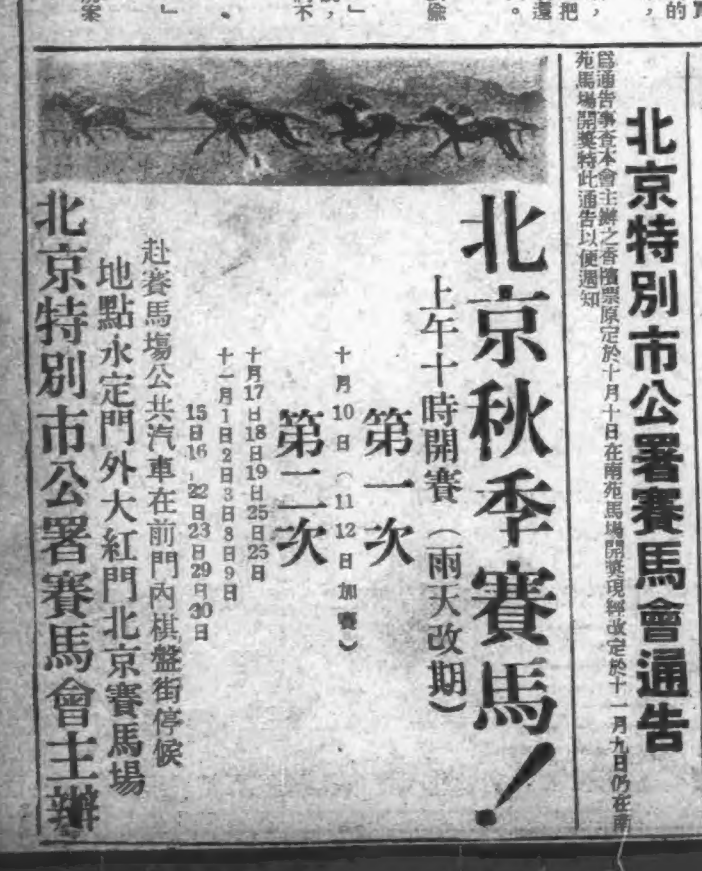 北京特別市公署賽馬會通告
爲通告事查本會主辦之香檳票原定於十月十日在南苑馬場開獎現經改定於十一月九日仍在南
苑馬場開獎特此通告以便週知
北京秋季賽馬！
上午十時開賽（雨天改期）
第一次
十月10日（11 12日加賽）
第二次
十月17日18日19日25日25日
十一月1日2日3日8日9日
15日16，22日23日29日30日
赴賽馬塲公共汽車在前門內棋盤街停候
地點永定門外大紅門北京賽馬場
北京特別市公署賽馬會主辦